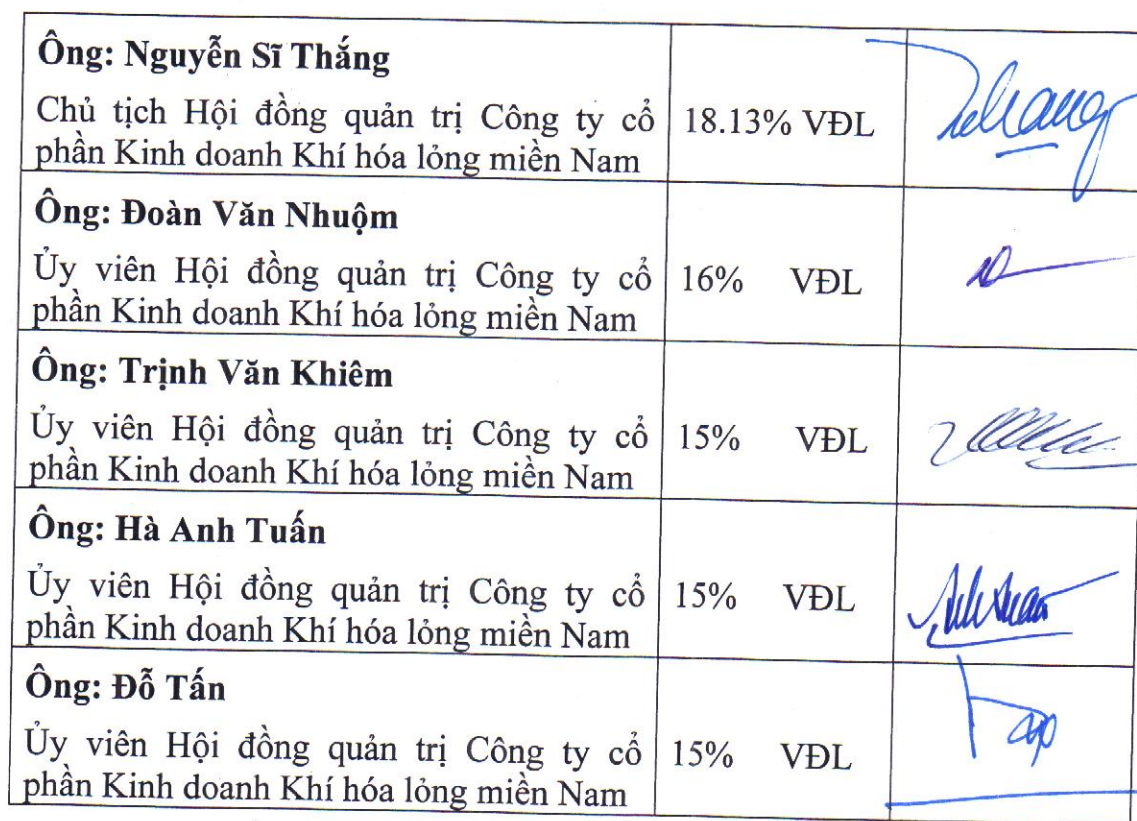 Ông: Nguyễn Sĩ Thắng
Chủ tịch Hội đồng quản trị Công ty cổ
phần Kinh doanh Khí hóa lỏng miền Nam
18.13% VĐL
Ông: Đoàn Văn Nhuộm
Ủy viên Hội đồng quản trị Công ty cổ
phần Kinh doanh Khí hóa lỏng miền Nam
16% VĐL
Ông: Trịnh Văn Khiêm
Ủy viên Hội đồng quản trị Công ty cổ
phần Kinh doanh Khí hóa lỏng miền Nam
15% VĐL
Ông: Hà Anh Tuấn
Ủy viên Hội đồng quản trị Công ty cổ
phần Kinh doanh Khí hóa lỏng miền Nam
15% VĐL
Ông: Đỗ Tấn
Ủy viên Hội đồng quản trị Công ty cổ
phần Kinh doanh Khí hóa lỏng miền Nam
15% VĐL